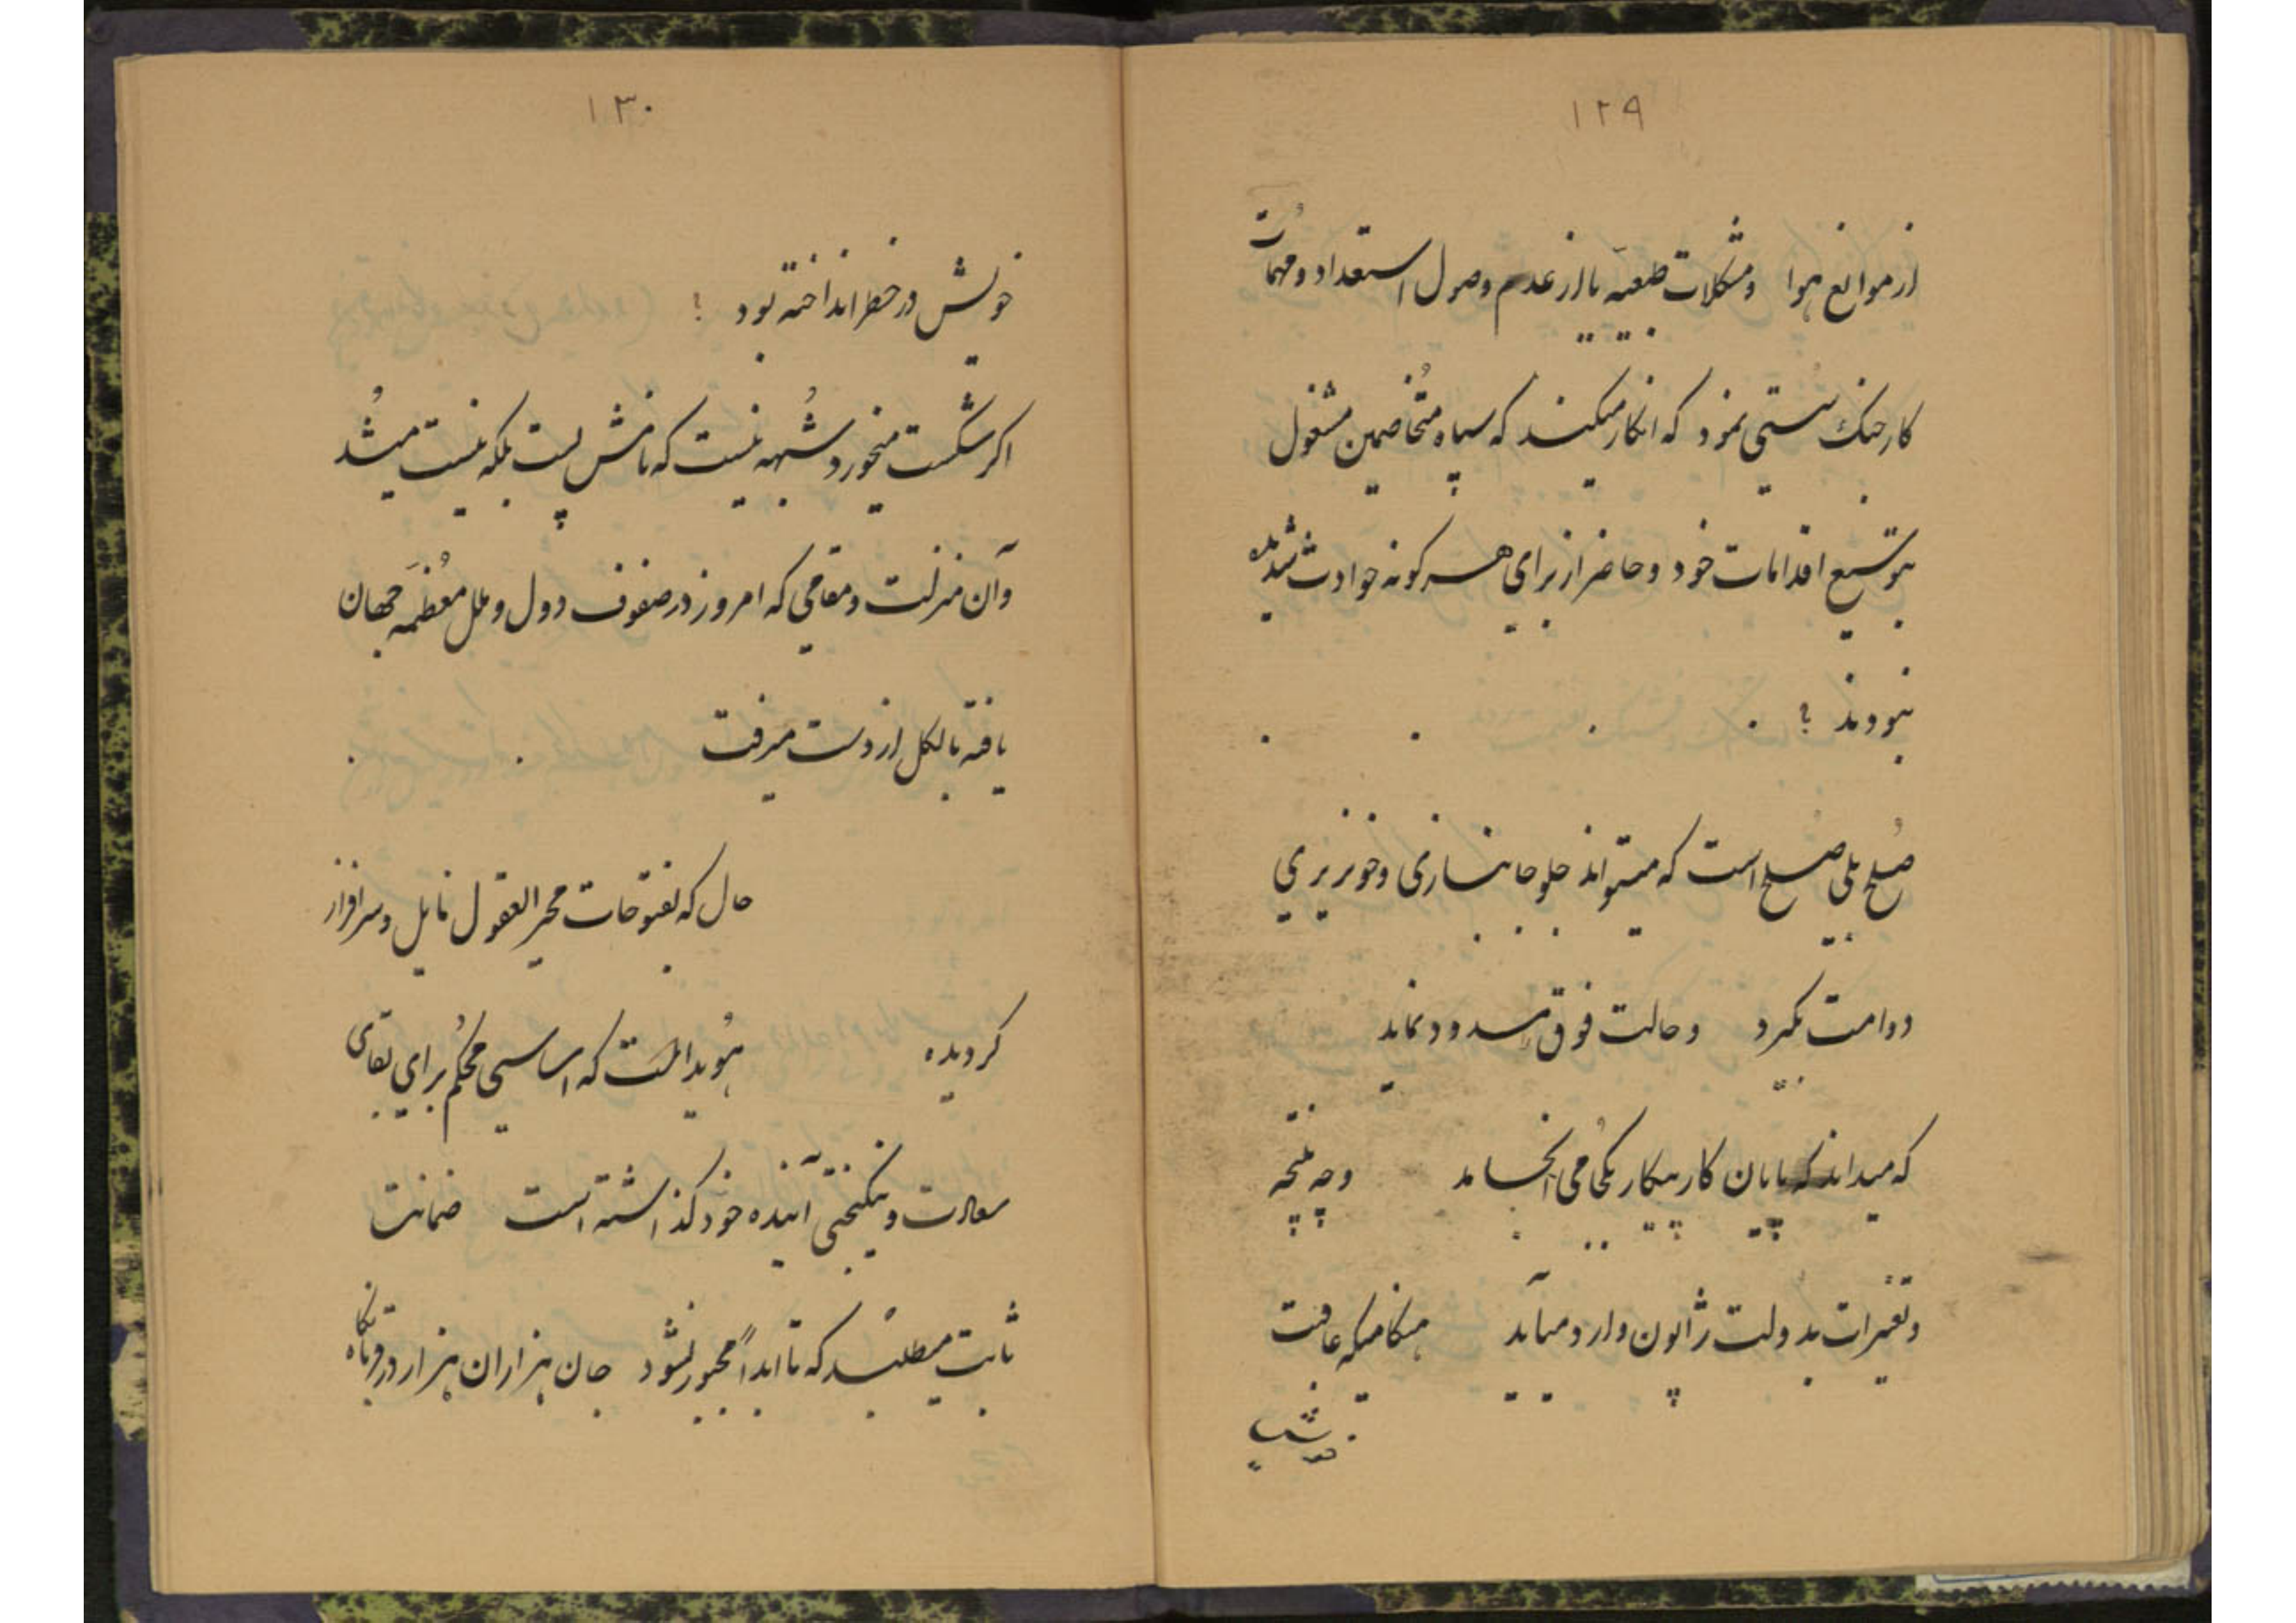 ۱۲۹
از موانع هوا و مشکلات طبیعیه یا از عدم وصول استعداد و مهمات
کار جنک سستی نمود که انکار میکند که سپاه متخاصمین مشغول
بتوسیع اقدامات خود و حاضر از برای هرکونه حوادث شدیده
نبودند ؟
صُلح بلی صلح است که میتواند جلو جانبازی و خونریزی
دوامت بکیرد و حالت فوق مسدود نماید
که میداند که پایان کار پیکار بکجا می انجامد و چه نتیجه
و تغییرات بدولت ژاپون وارد میآید هنکامیکه عاقبت
خویش
۱۳۰
خویش در خطر انداخته بود ؟
اکر شکست میخورد شُبهه نیست که نامش پست بلکه نیست میشُد
و آن منزلت و مقامی که امروز در صفوف دول و ملل مُعظمَه جهان
یافته بالکل از دست میرفت
حال که بفتوحات محیر العقول نایل و سرافراز
کردیده هُویداست که اساسی محکم برای بقای
سعادت و نیکبختی آینده خود کذاشته است ضمانت
ثابت میطلبد که تا ابداً مجبور نشود جان هزاران هزار در قربانکاه